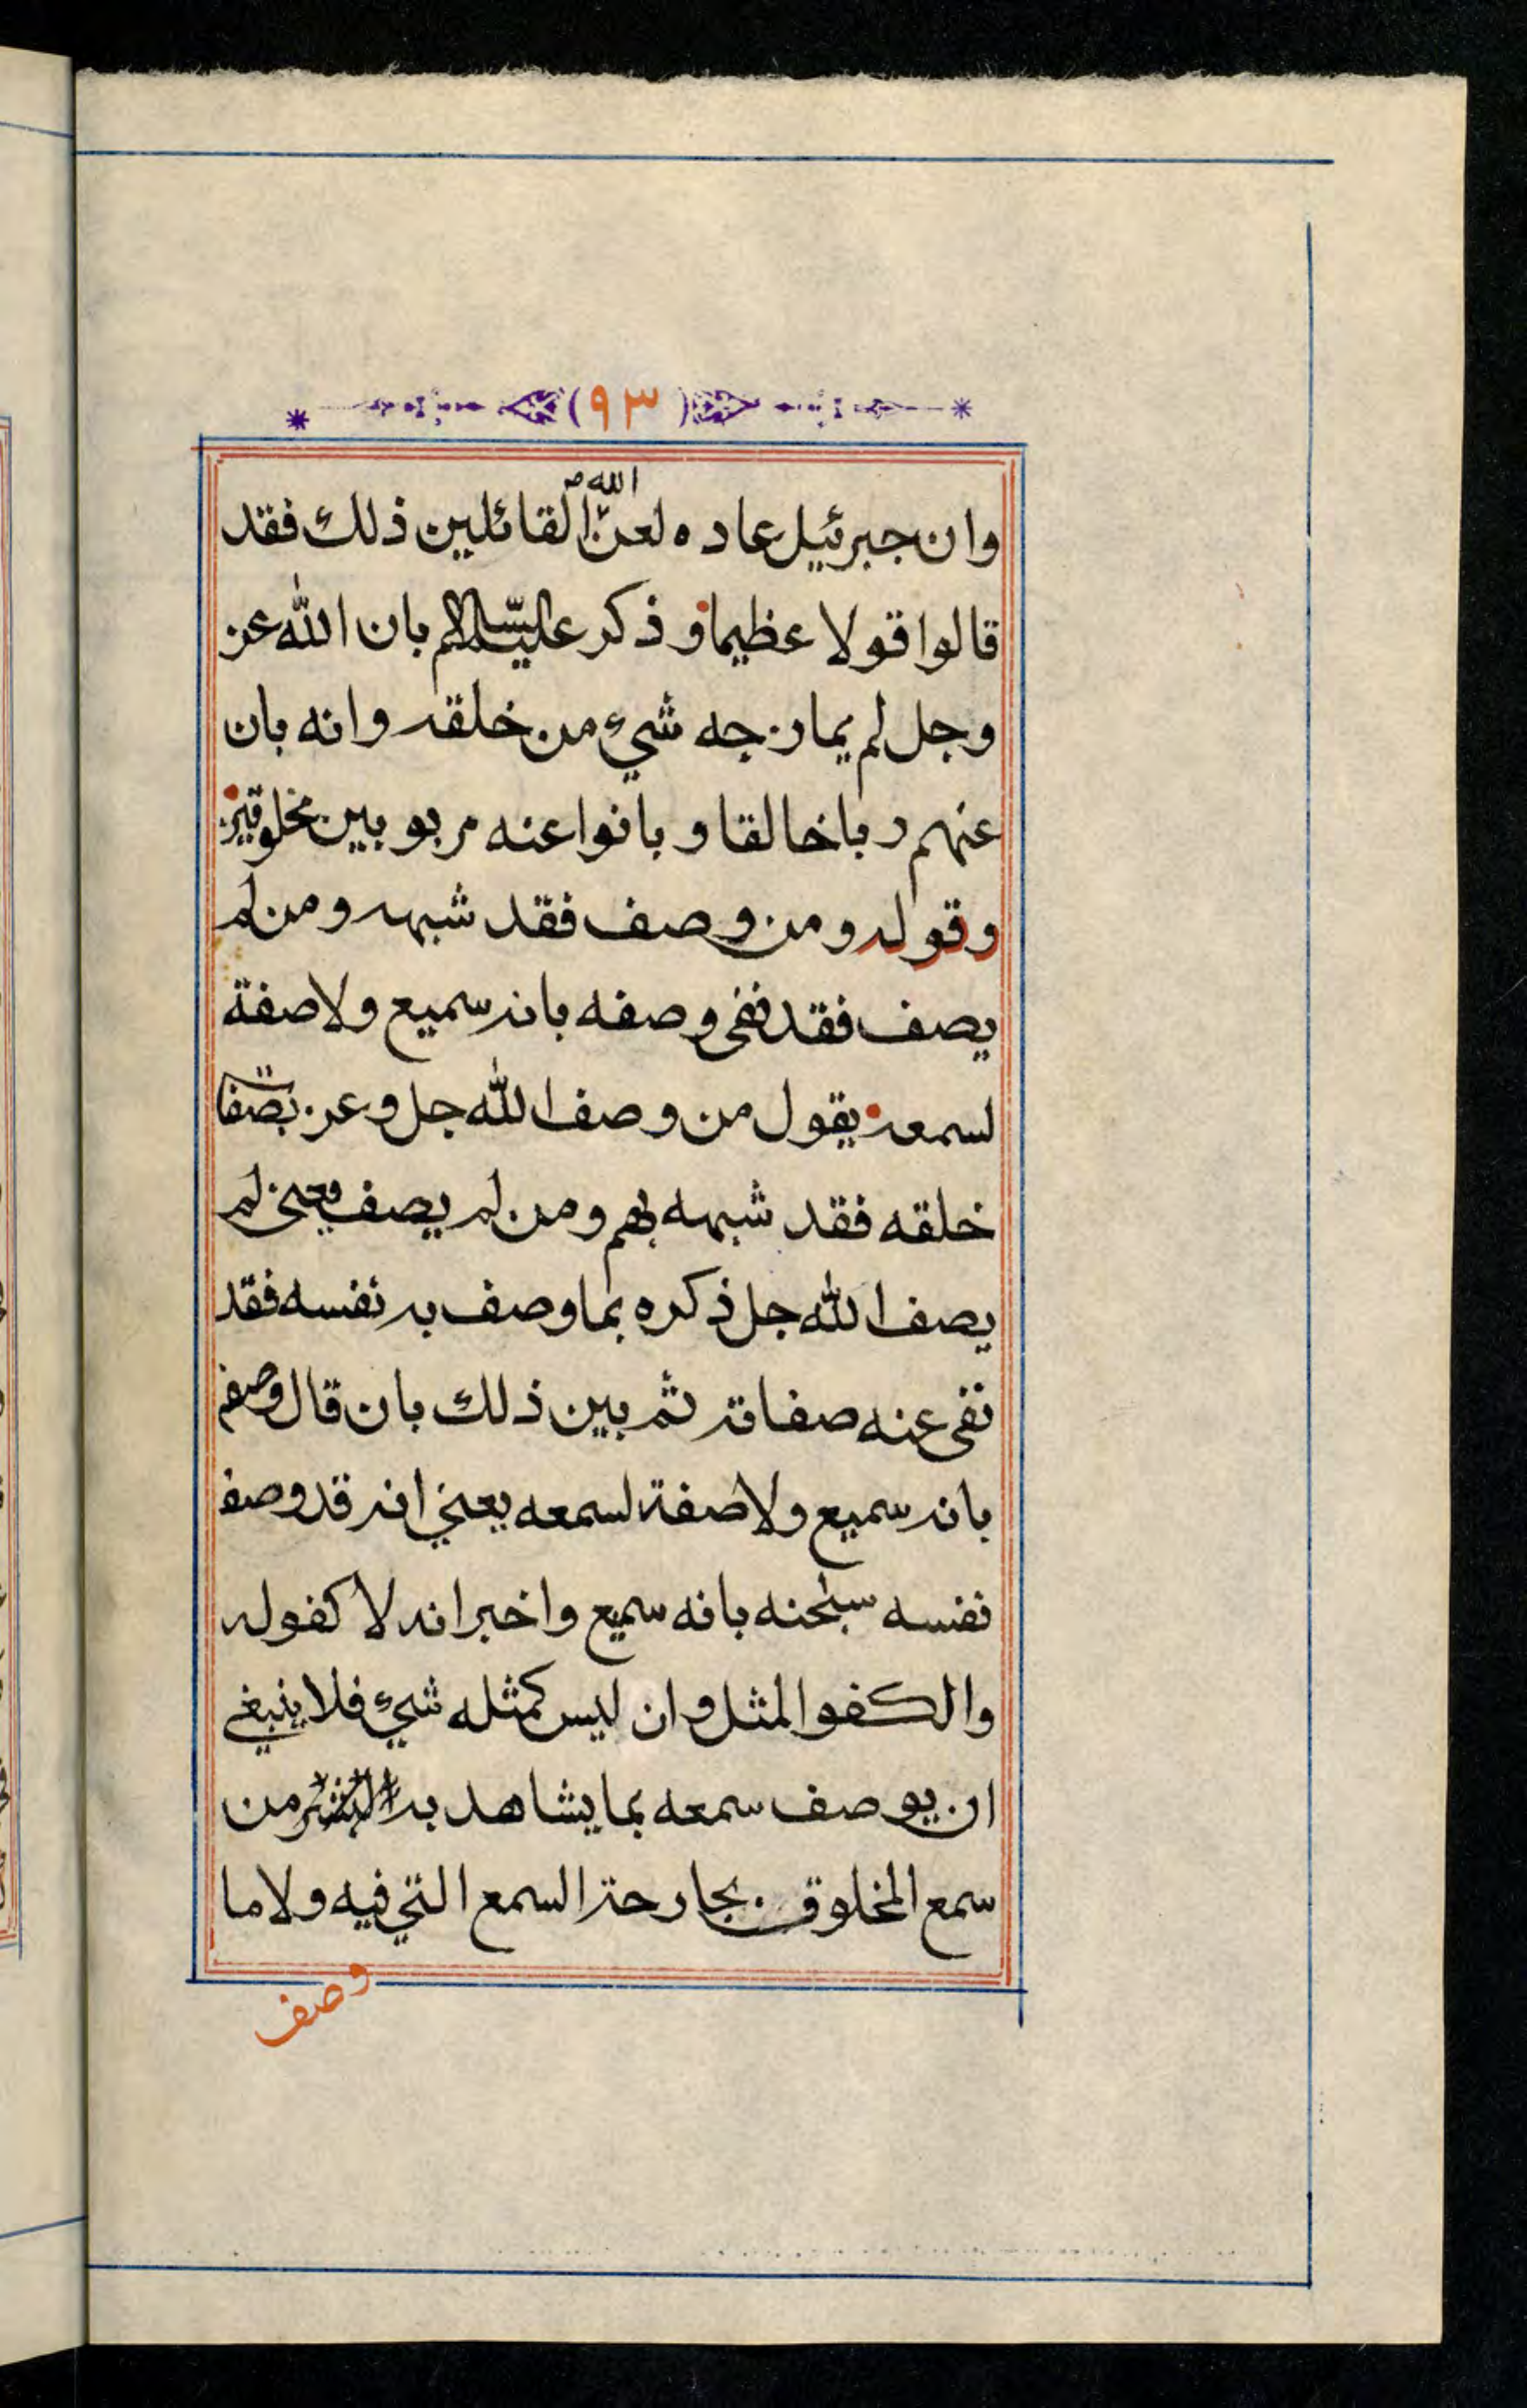 (٩٣)
وان جبرئيل عاده لعن الله القائلين ذلك فقد
قالوا قولا عظيما وذكر عليه السلام بان الله عز
وجل لم يمازجه شيء من خلقه وانه بان
عنهم ربا خالقا وبانوا عنه مربوبين مخلوقين
وقوله ومن وصف فقد شبهه ومن لم
يصف فقد نفى وصفه بانه سميع ولا صفة
لسمعه يقول من وصف الله جل وعز بصفات
خلقه فقد شبهه بهم ومن لم يصف يعني لم
يصف الله جل ذكره بما وصف به نفسه فقد
نفى عنه صفاته ثم بين ذلك بان قال وصفه
بانه سميع ولا صفة لسمعه يعني انه قد وصف
نفسه سبحنه بانه سميع واخبر انه لا كفو له
والكفو المثل وان ليس كمثله شيء فلا ينبغي
ان يوصف سمعه بما يشاهد به البشر من
سمع المخلوق بجارحة السمع التي فيه ولا ما
وصف